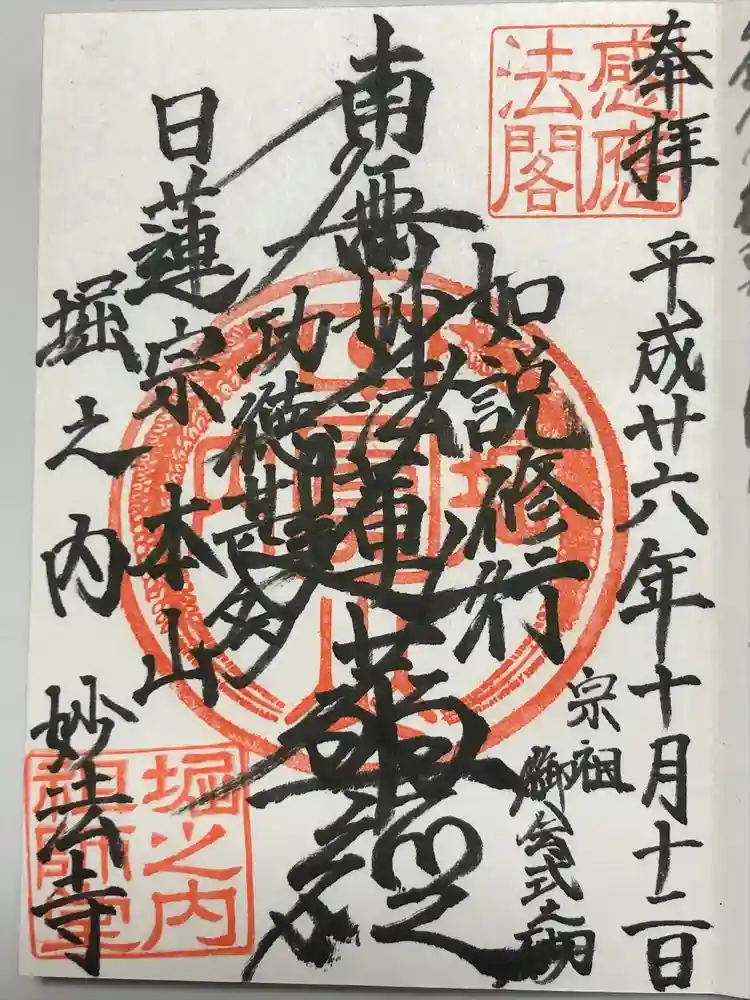 奉拝
平成廿六年十月十二日
宗祖
御会式之砌
感應
法閣
如説修行
南無妙法蓮華経
功徳甚多
日蓮宗本山
堀之内
妙法寺
堀之内
祖師堂